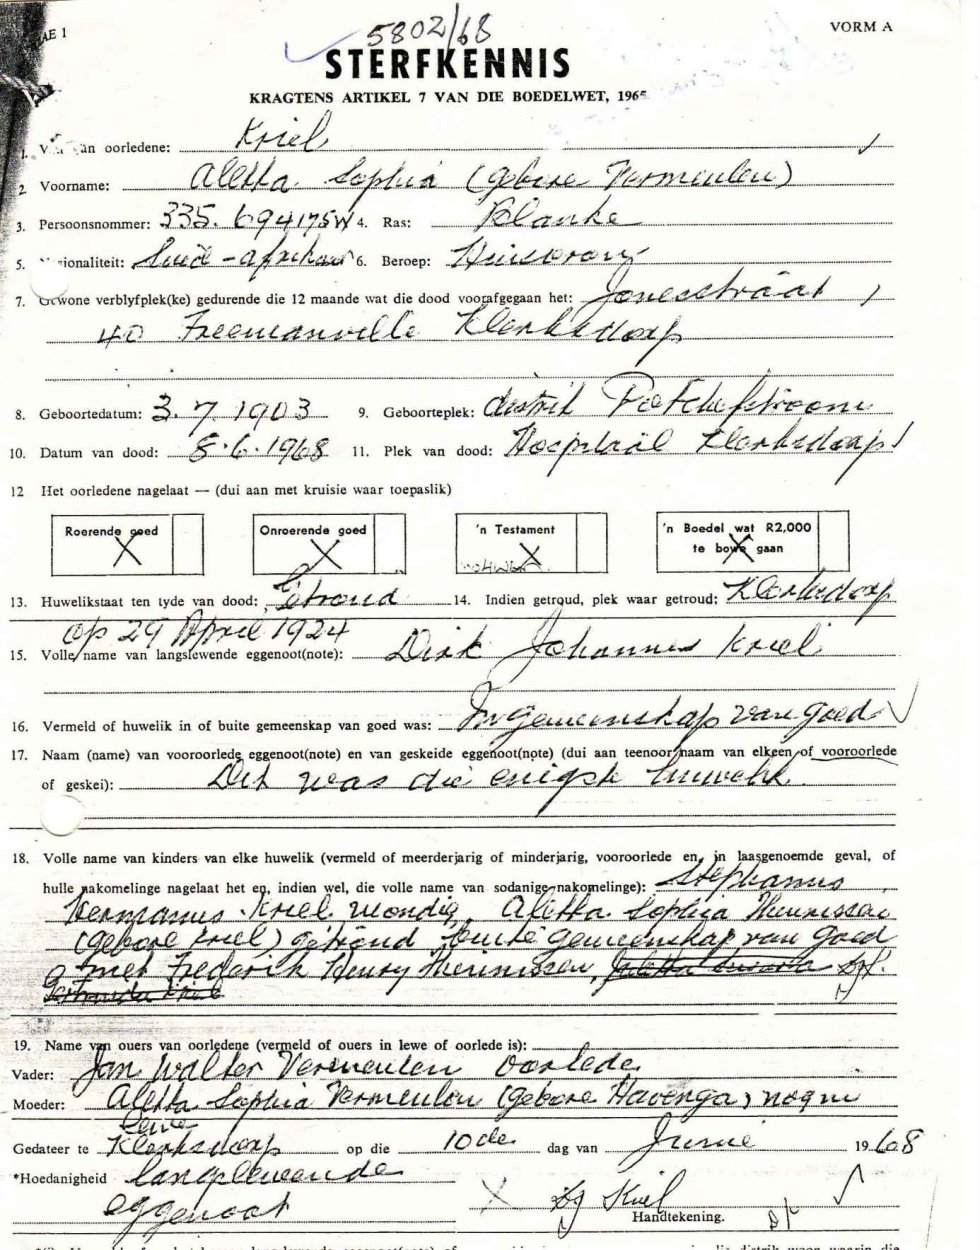 5802/68
VORM A
STERFKENNIS
KRAGTENS ARTIKEL 7 VAN DIE BOEDELWET, 1965
1. Van van oorledene: Kriel
2. Voorname: Aletta Sophia (gebore Vermeulen)
3. Persoonsnommer: 335.694175W 4. Ras: Blanke
5. Nasionaliteit: Suid-afrikaans 6. Beroep: Huisvrou
7. Gewone verblyfplek(ke) gedurende die 12 maande wat die dood voorafgegaan het: Jonesstraat
40 Freemanville Klerksdorp
8. Geboortedatum: 3.7.1903 9. Geboorteplek: distrik Potchefstroom
10. Datum van dood: 8.6.1968 11. Plek van dood: Hospitaal Klerksdorp
12 Het oorledene nagelaat — (dui aan met kruisie waar toepaslik)
Roerende goed X Onroerende goed X 'n Testament X 'n Boedel wat R2,000 te bowe gaan X
13. Huwelikstaat ten tyde van dood: Getroud 14. Indien getroud, plek waar getroud: Klerksdorp
op 29 April 1924
15. Volle name van langslewende eggenoot(note): Dirk Johannes Kriel
16. Vermeld of huwelik in of buite gemeenskap van goed was: In gemeenskap van goed
17. Naam (name) van vooroorlede eggenoot(note) en van geskeide eggenoot(note) (dui aan teenoor naam van elkeen of vooroorlede
of geskei): Dit was die enigste huwelik
18. Volle name van kinders van elke huwelik (vermeld of meerderjarig of minderjarig, vooroorlede en, in laasgenoemde geval, of
hulle nakomelinge nagelaat het en, indien wel, die volle name van sodanige nakomelinge): Stephanus
Hermanus Kriel mondig, Aletta Sophia Theunissen
(gebore Kriel) getroud buite gemeenskap van goed
met Frederik Henry Theunissen,
19. Name van ouers van oorledene (vermeld of ouers in lewe of oorlede is):
Vader: Jan Walter Vermeulen oorlede
Moeder: Aletta Sophia Vermeulen (gebore Havenga) nog in
lewe
Gedateer te Klerksdorp op die 10de dag van Junie 1968
*Hoedanigheid langslewende
eggenoot
X DJ Kriel
Handtekening.